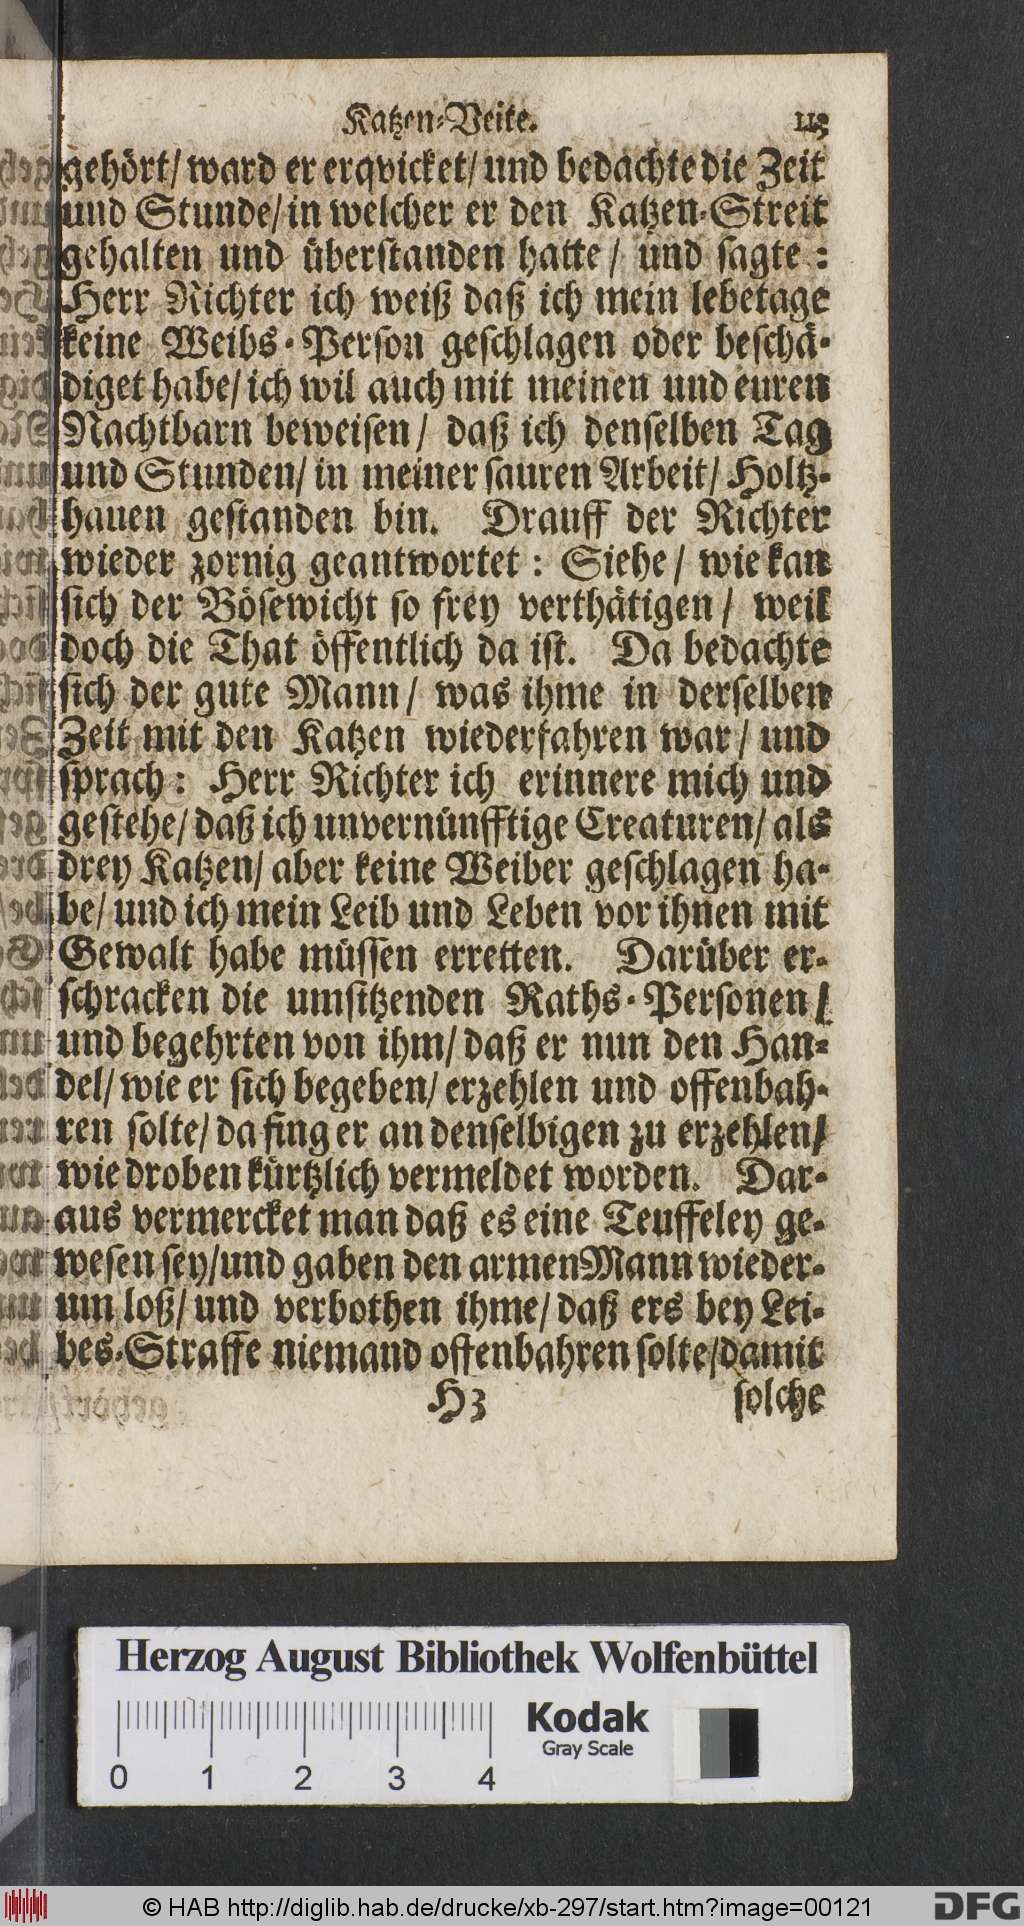 Katzen-Veite. 113
gehört/ ward er erqvicket/ und bedachte die Zeit
und Stunde/ in welcher er den Katzen-Streit
gehalten und überstanden hatte/ und sagte:
Herr Richter ich weiß daß ich mein lebetage
keine Weibs-Person geschlagen oder beschä-
diget habe/ ich wil auch mit meinen und euren
Nachtbarn beweisen/ daß ich denselben Tag
und Stunden/ in meiner sauren Arbeit/ Holtz-
hauen gestanden bin. Drauff der Richter
wieder zornig geantwortet: Siehe/ wie kan
sich der Bösewicht so frey verthätigen/ weil
doch die That öffentlich da ist. Da bedachte
sich der gute Mann/ was ihme in derselben
Zeit mit den Katzen wiederfahren war/ und
sprach: Herr Richter ich erinnere mich und
gestehe/ daß ich unvernünfftige Creaturen/ als
drey Katzen/ aber keine Weiber geschlagen ha-
be/ und ich mein Leib und Leben vor ihnen mit
Gewalt habe müssen erretten. Darüber er-
schracken die umsitzenden Raths-Personen/
und begehrten von ihm/ daß er nun den Han-
del/ wie er sich begeben/ erzehlen und offenbah-
ren solte/ da fing er an denselbigen zu erzehlen/
wie droben kürtzlich vermeldet worden. Dar-
aus vermercket man daß es eine Teuffeley ge-
wesen sey/ und gaben den armen Mann wieder-
um loß/ und verbothen ihme/ daß ers bey Lei-
bes-Straffe niemand offenbahren solte/ damit
H3 solche
Herzog August Bibliothek Wolfenbüttel
Kodak
Gray Scale
0 1 2 3 4
© HAB http://diglib.hab.de/drucke/xb-297/start.htm?image=00121
DFG